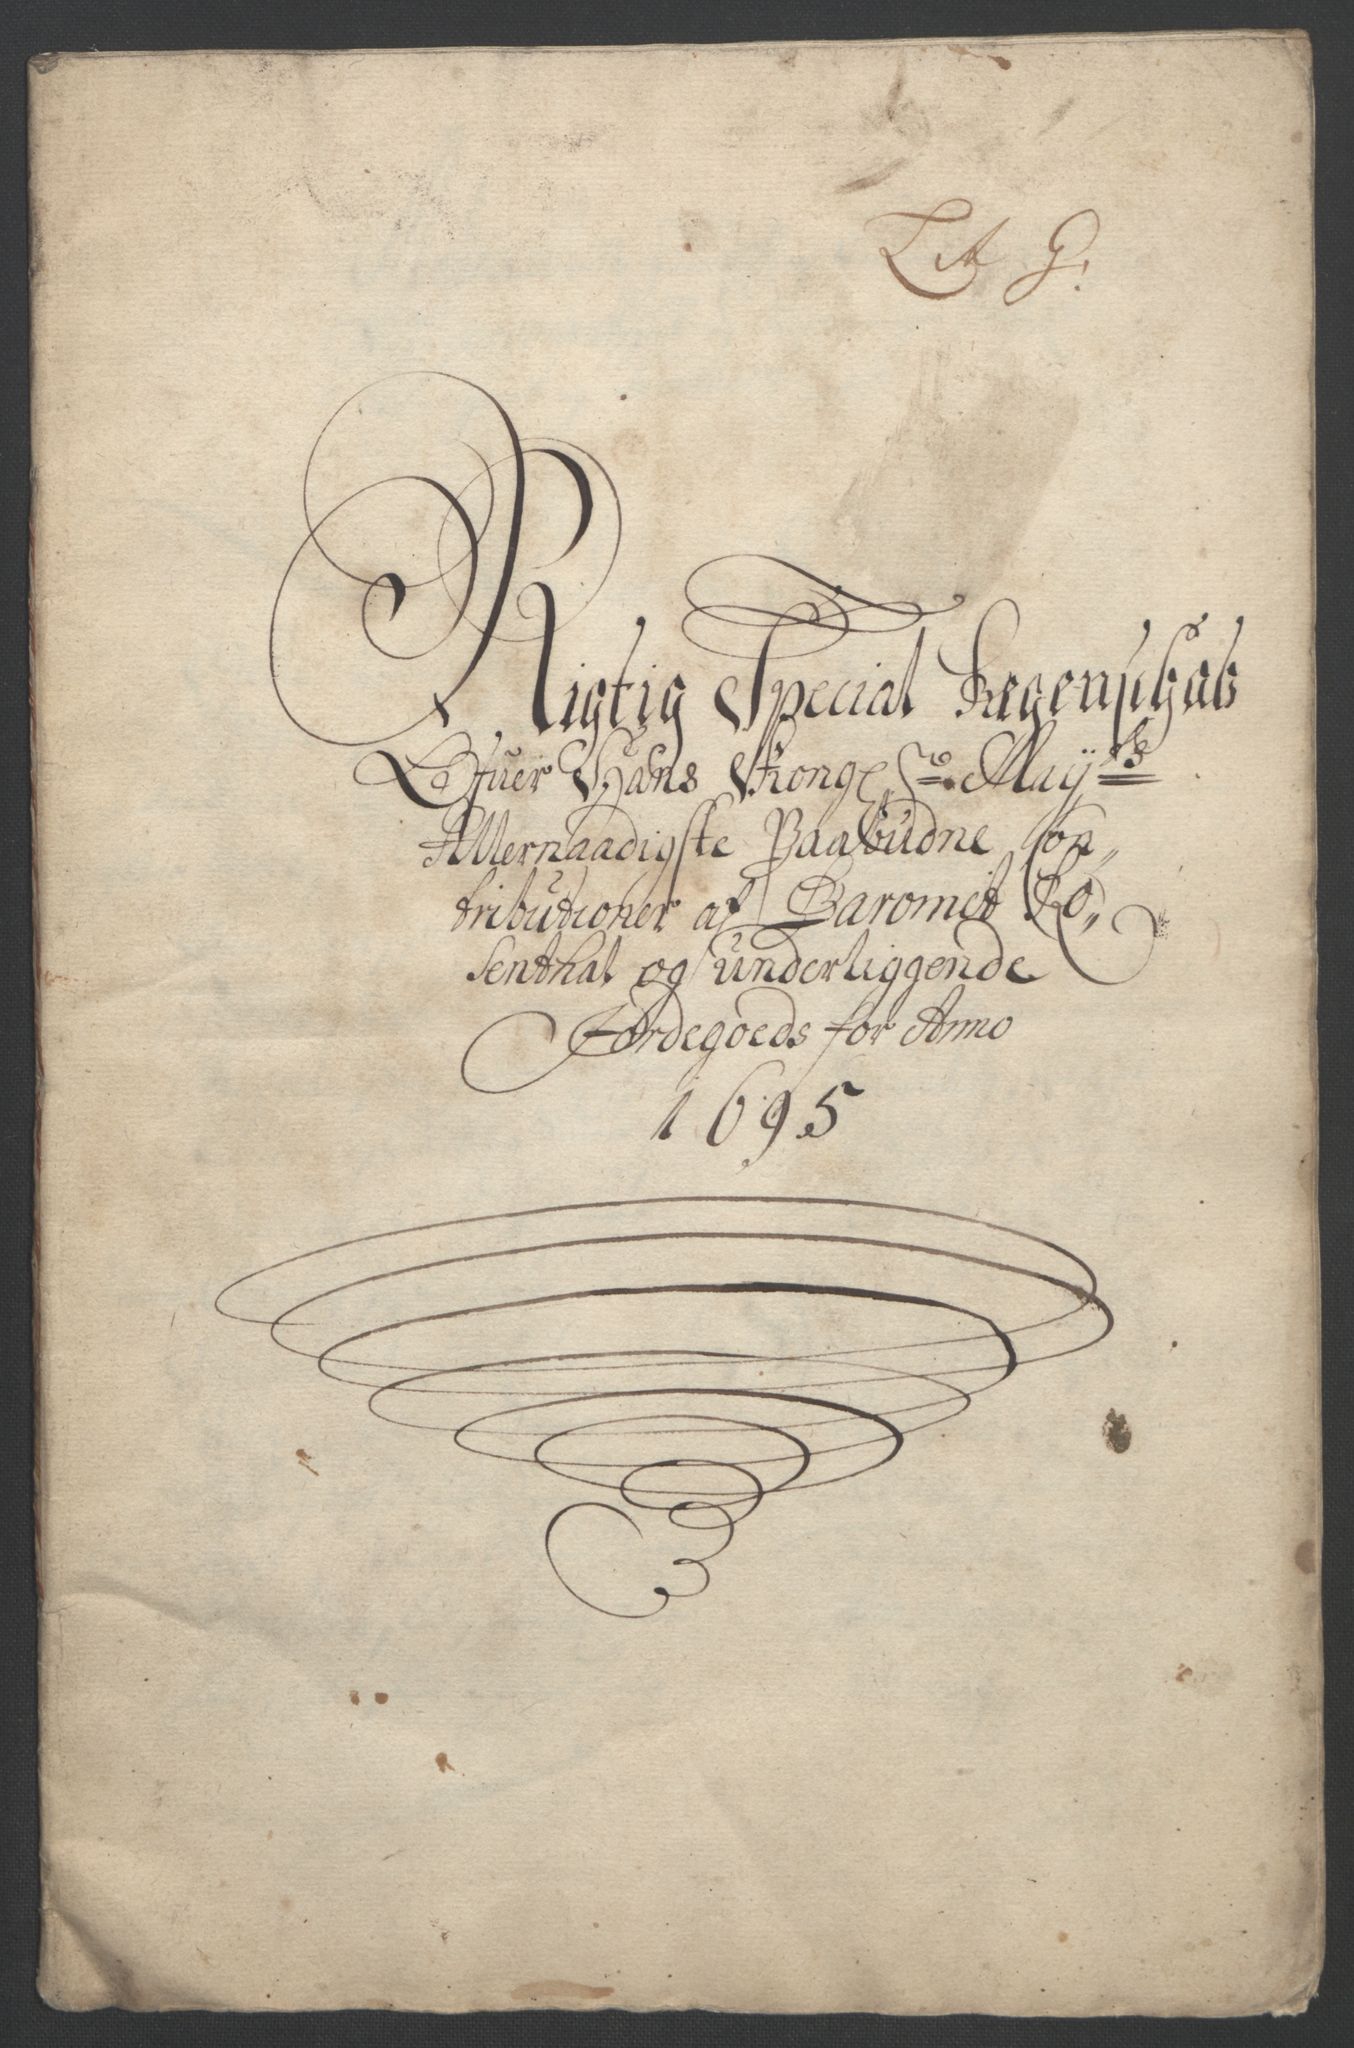 Lit G:
Rigtig Special Regenschab
Ofuer Hans Kongel: Maÿts
Allernaadigste Paabudne Con,,
tributioner af Baroniet Ro,,
senthal og underliggende
Jordegoeds for Anno
1695